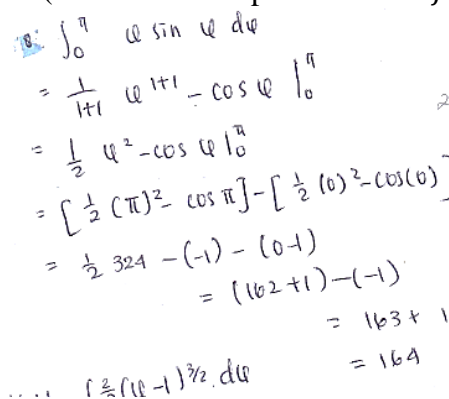 8. ∫₀^π φ sin φ dφ
= 1/(1+1) φ^(1+1) - cos φ |₀^π
= 1/2 φ² - cos φ |₀^π
= [1/2 (π)² - cos π] - [1/2 (0)² - cos(0)]
= 1/2 324 - (-1) - (0-1)
= (162 + 1) - (-1)
= 163 + 1
= 164
(φ-1)^(3/2) . dφ